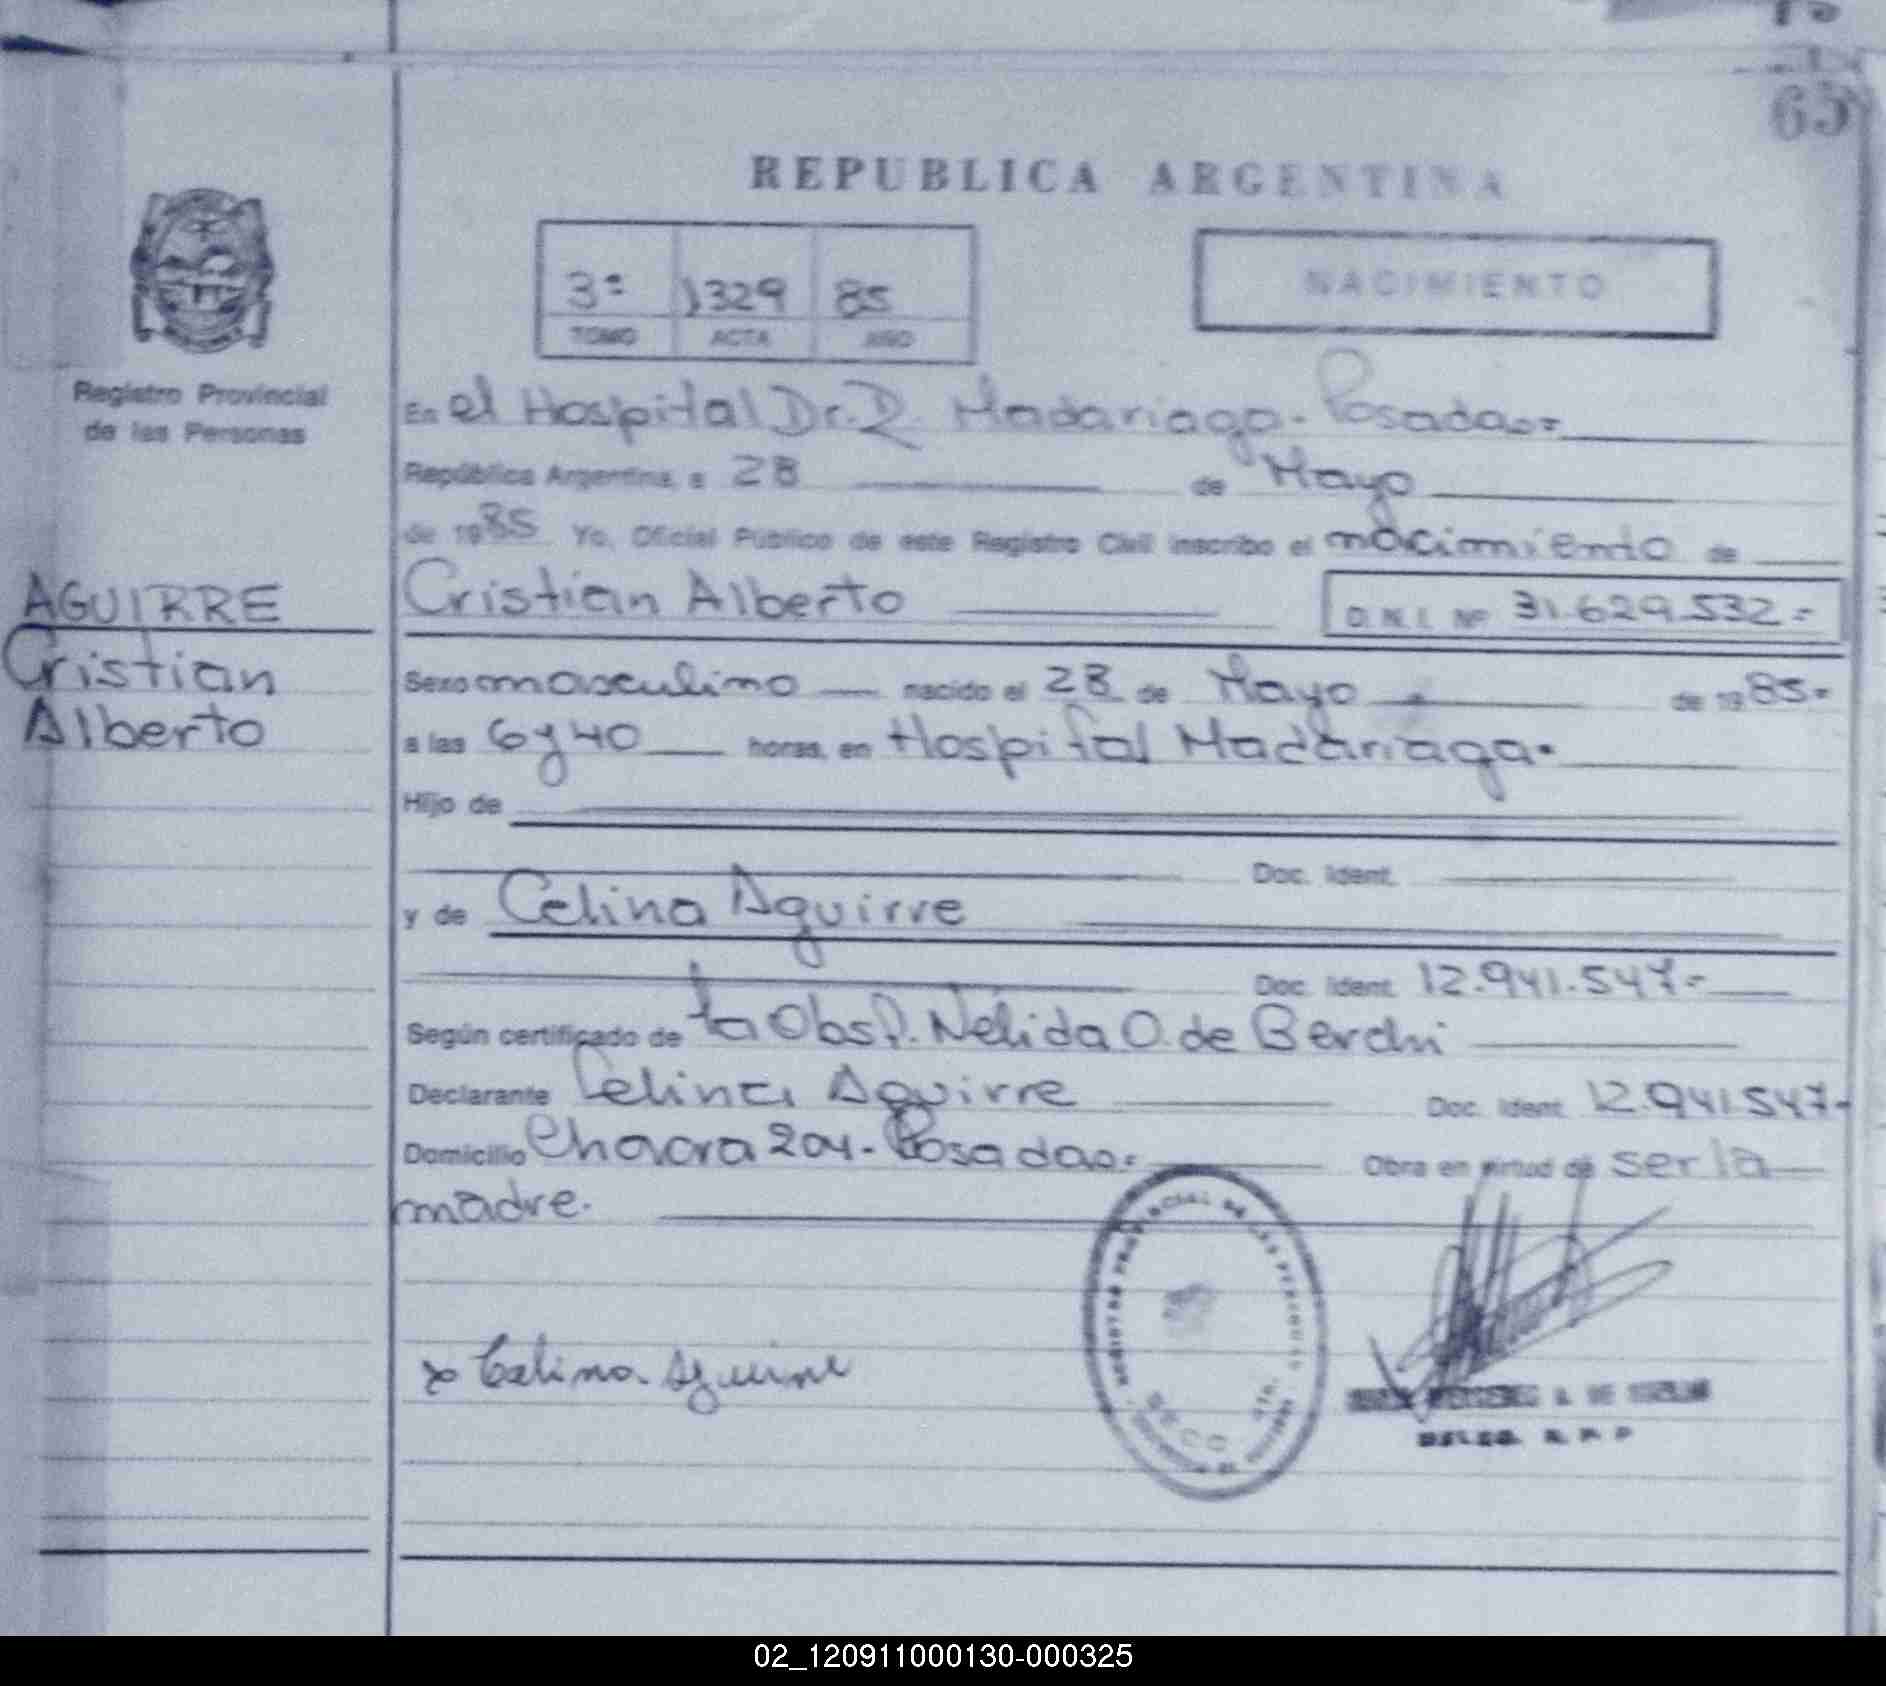 65
REPUBLICA ARGENTINA
3º 1329 85
TOMO ACTA AÑO
NACIMIENTO
Registro Provincial
de las Personas
AGUIRRE
Cristian
Alberto
En el Hospital Dr. R. Madariaga - Posadas=
República Argentina, a 28 de Mayo
de 1985 Yo, Oficial Público de este Registro Civil inscribo el nacimiento de
Cristian Alberto D.N.I. Nº 31.629.532.=
Sexo masculino nacido el 28 de Mayo de 1985.
a las 6 y 40 horas, en Hospital Madariaga.
Hijo de
Doc. Ident.
y de Celina Aguirre
Doc. Ident. 12.941.547.-
Según certificado de la Obst. Nélida O. de Berchi
Declarante Celina Aguirre Doc. Ident. 12.941.547.-
Domicilio Chacra 204 - Posadas.= Obra en virtud de ser la
madre.
REGISTRO PROVINCIAL DE LAS PERSONAS
x Celina Aguirre
DELEG. R. P. P
02_120911000130-000325